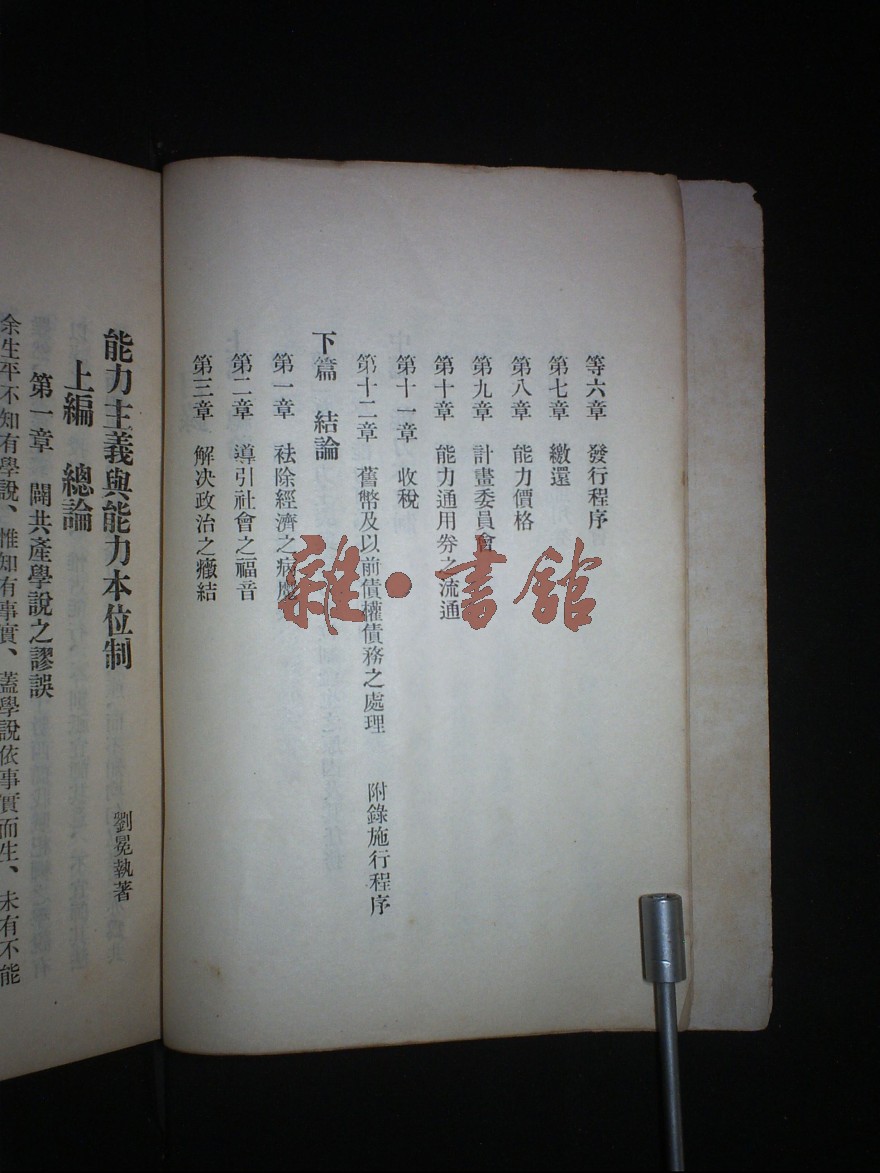 等六章　發行程序
第七章　繳還
第八章　能力價格
第九章　計畫委員會
第十章　能力通用券之流通
第十一章　收稅
第十二章　舊幣及以前債權債務之處理　附錄施行程序
下篇　結論
第一章　袪除經濟之病魔
第二章　導引社會之福音
第三章　解决政治之癥結
能力主義與能力本位制
劉冕執著
上編　總論
第一章　闢共產學說之謬誤
余生平不知有學說、惟知有事實、蓋學說依事實而生、未有不能
雜·書館